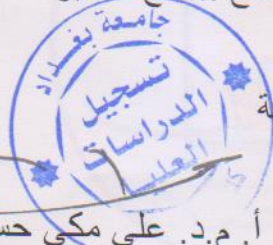 جامعة بغداد
تسجيل
الدراسات
العليا
أ.م.د. علي مكي